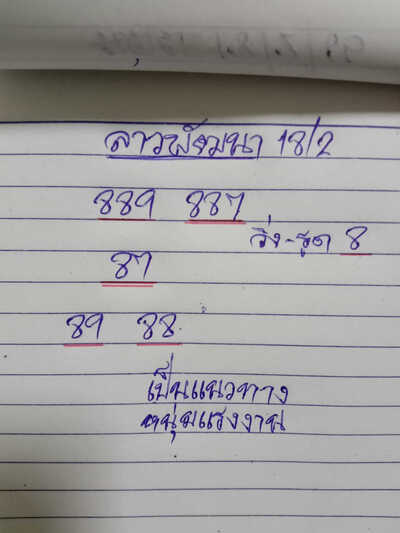 ลาวพัฒนา 18/2
889 887
วิ่ง-รูด 8
87
89 88
เป็นแนวทาง
หนุ่มแรงงาน